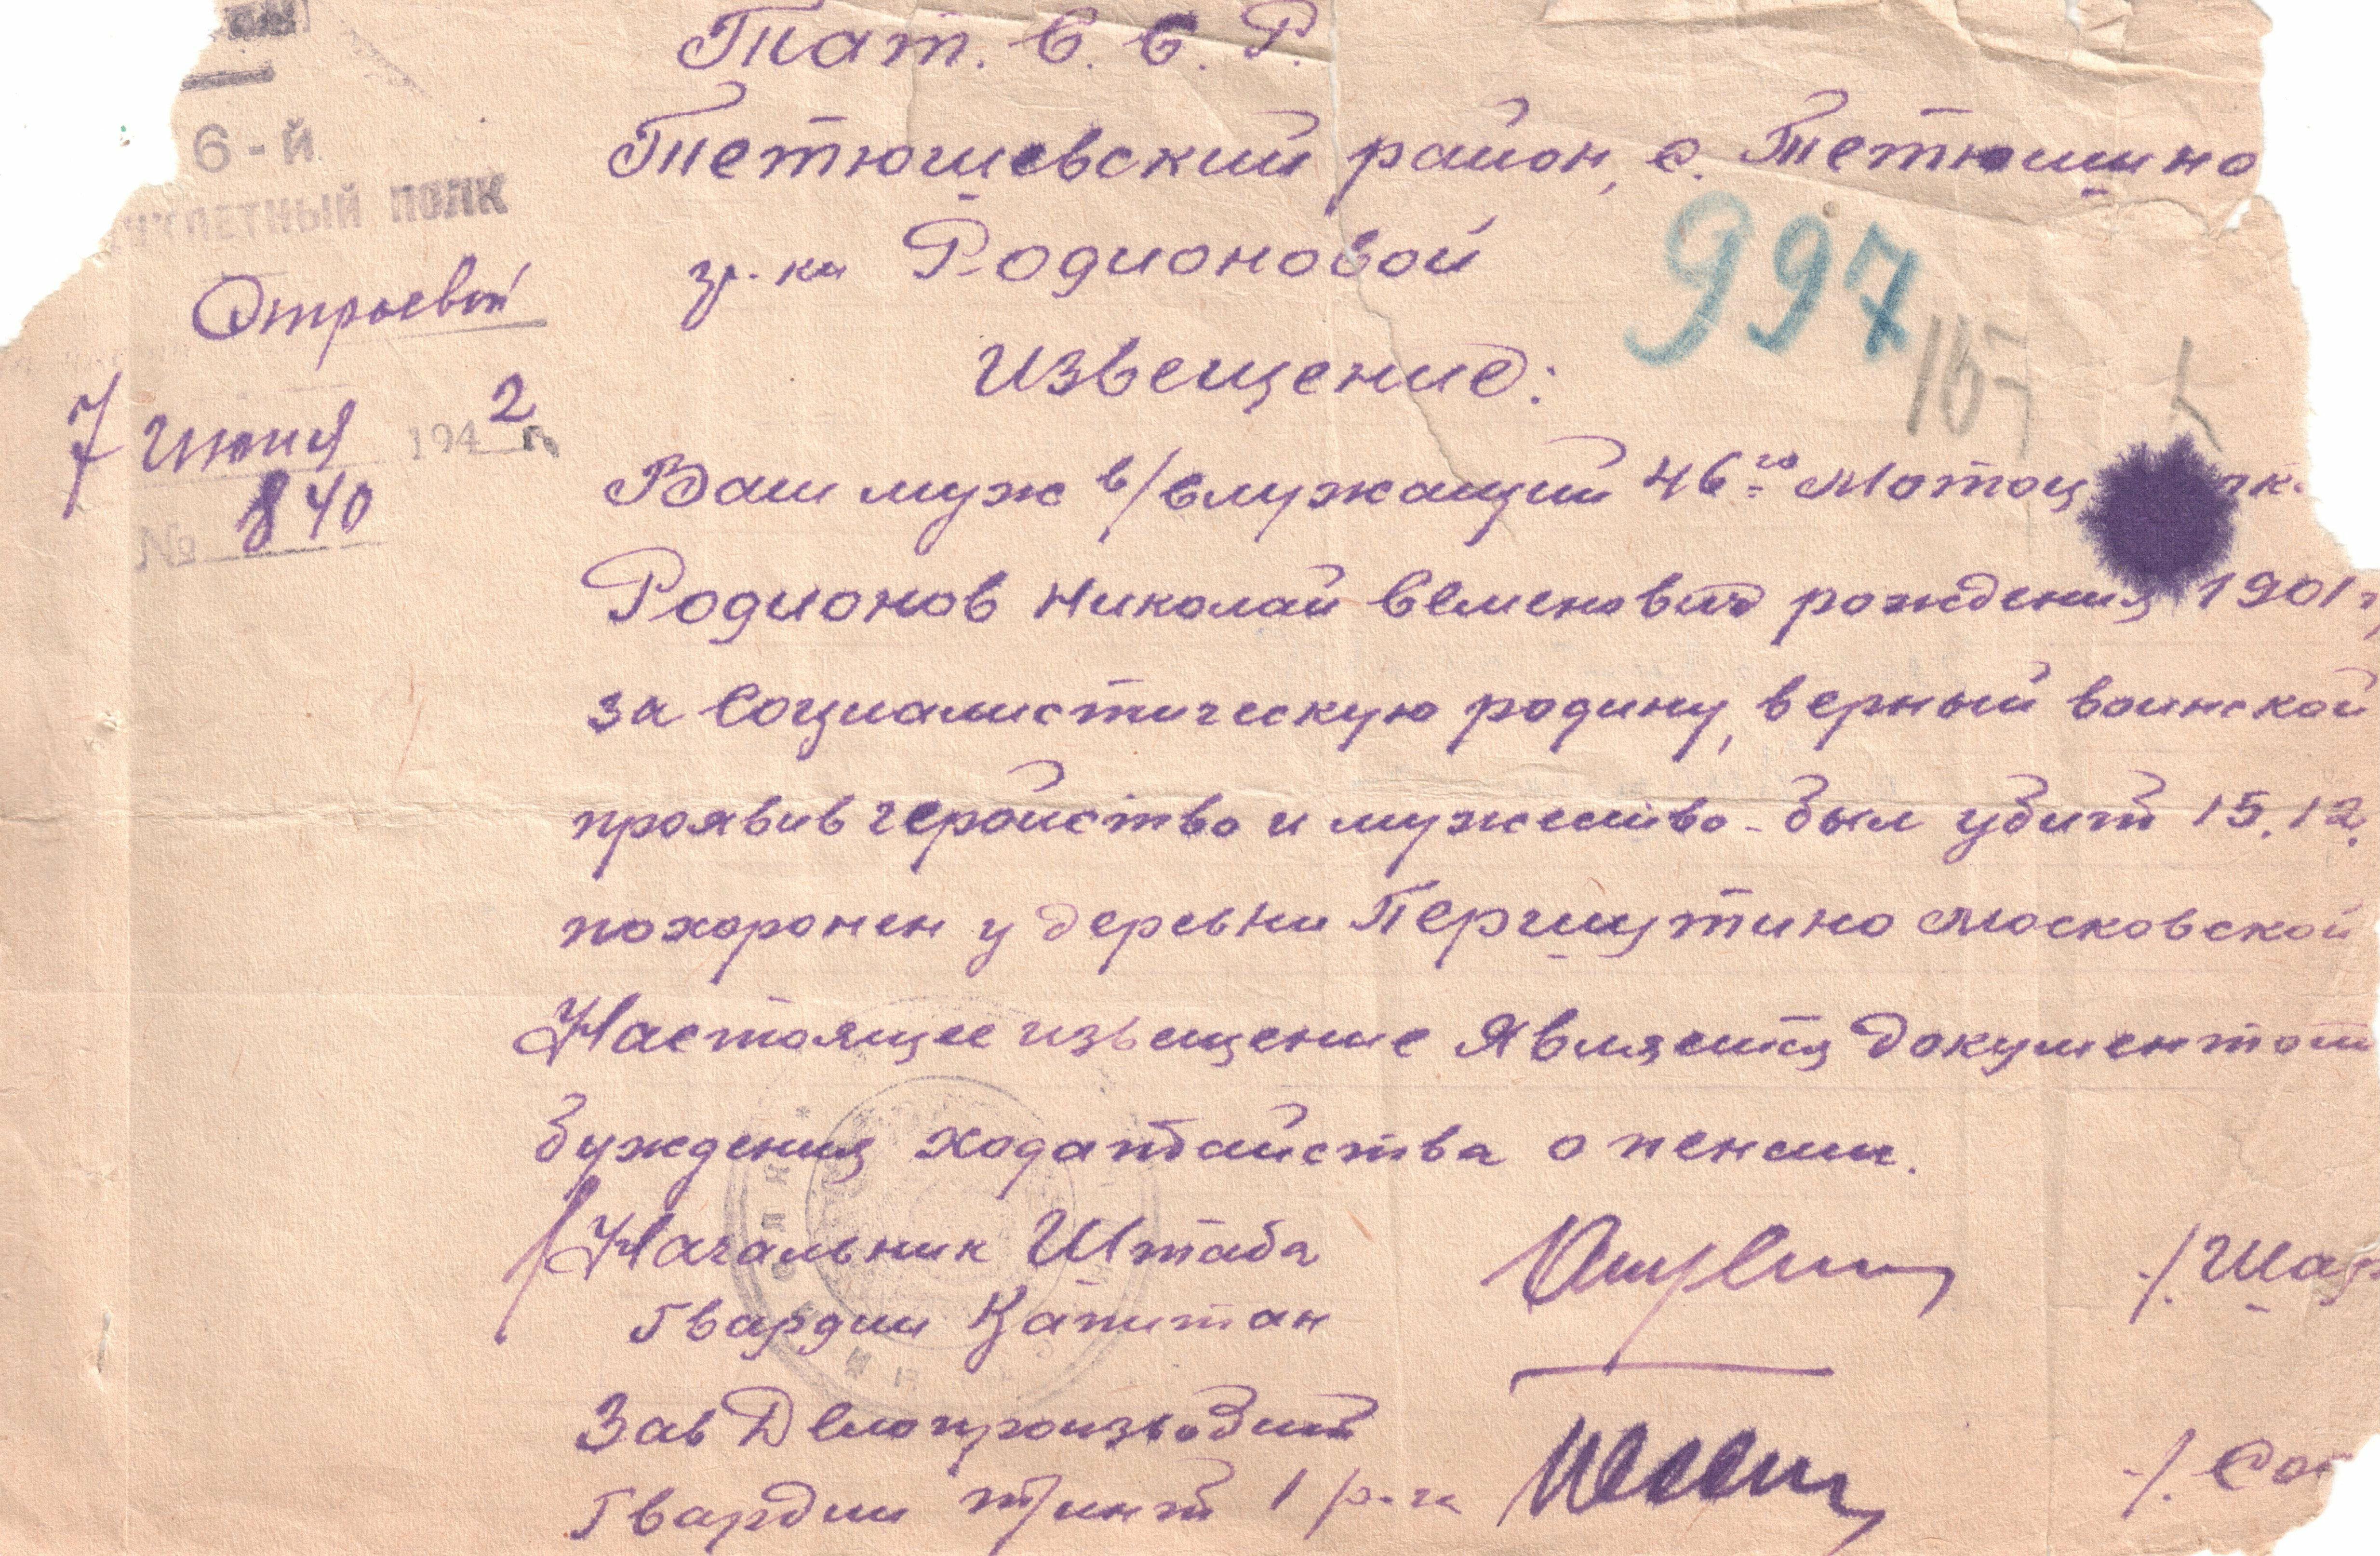 Тат. С. С. Р.
Тетюшевский район, с. Тетюшино
гр. ки Родионовой
997
157
6-й
ПОЛК
Строевой
7 Июня 1942 г.
№ 840
Извещение:
Ваш муж в/служащий 46го Мотоц
Родионов Николай Семенович рождения 1901 г
за Социалистическую родину, верный воинской
проявив геройство и мужество - был убит 15.12.
похоронен у деревни Першутино Московской
Настоящее извещение является документом
буждения ходатайства о пенсии.
Начальник Штаба
Гвардии Капитан
/. Шап
Зав Делопроизводит
Гвардии т/инт 1 р-га
/. Сог